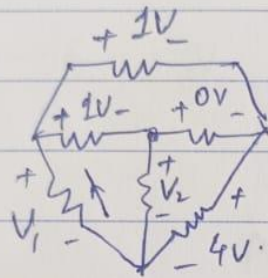 + 1V -
+ 1V - + 0V -
+ V₁ - + V₂ - + 4V. -